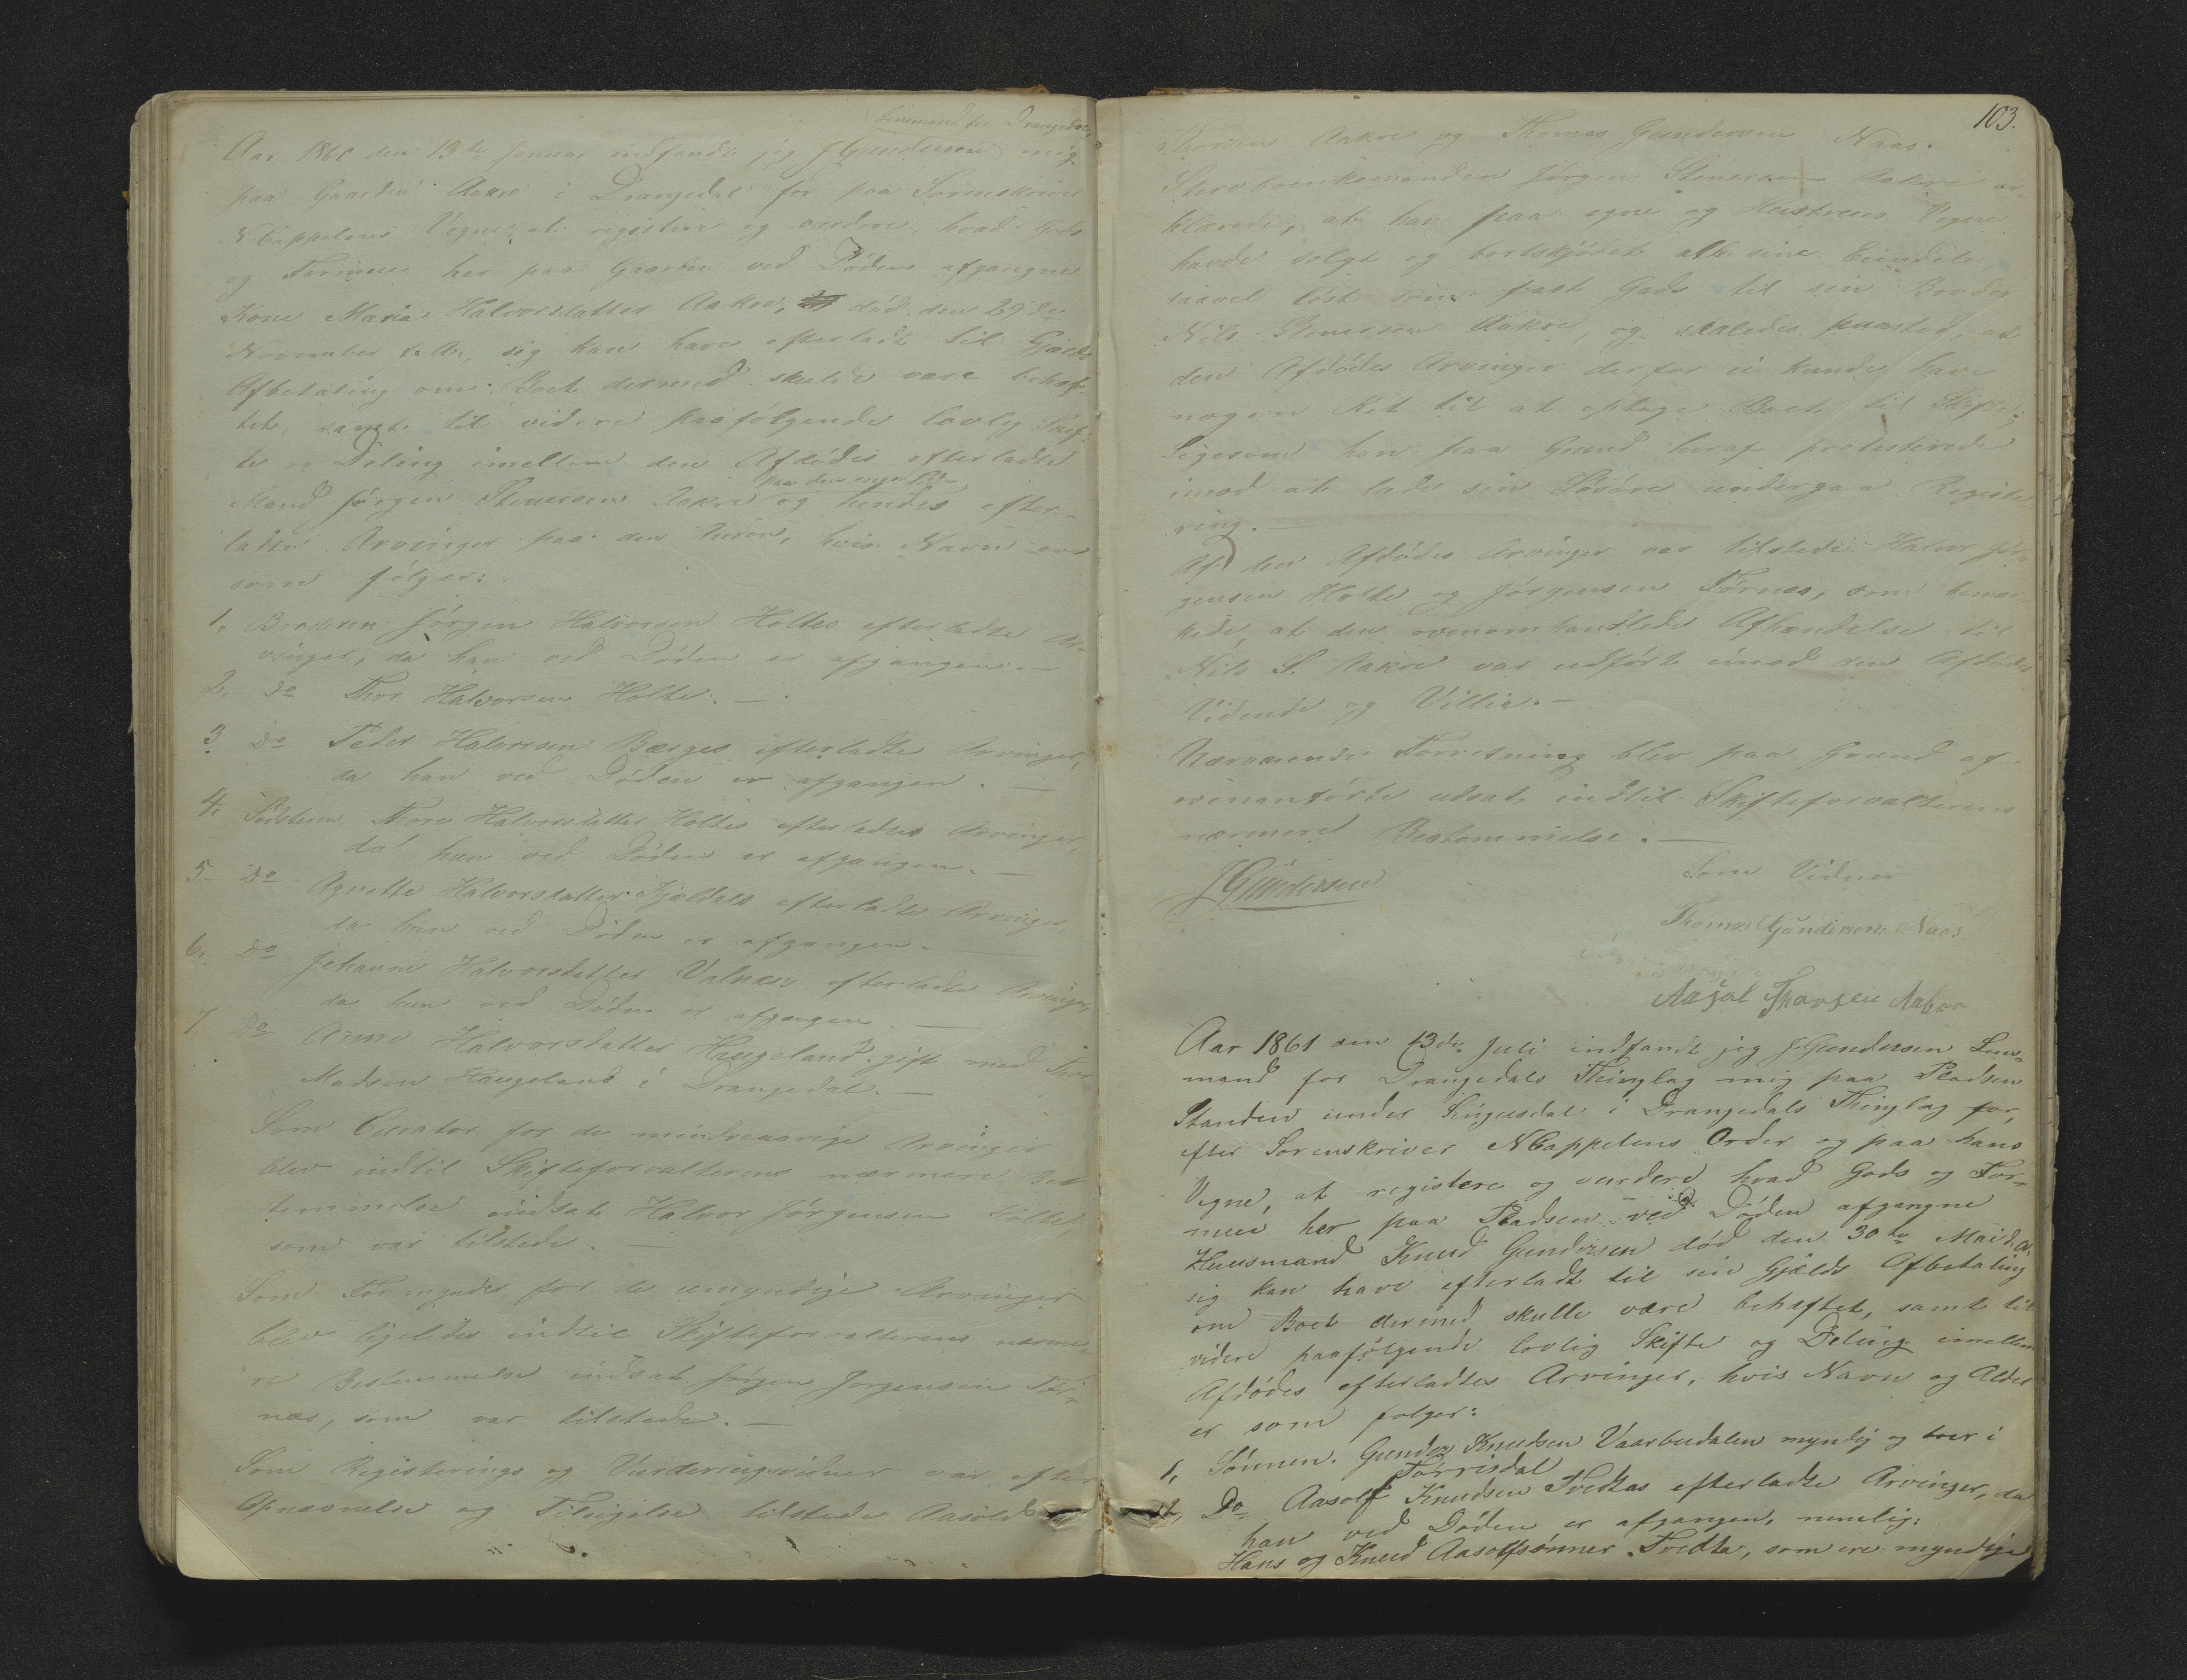 Lensmand for Drangedal
Aar 1860 den 13de Januar indfandt jeg J Gundersen mig
paa Gaarden Aakre i Drangedal for paa Sorenskriver
N. Cappelens Vegne at registere og vurdere, hvad Gods
og Formue her paa Gaarden ved Døden afgangne
Kone Maria Halvorsdatter Aakre, død den 29de
November f. A., sig kan have efterladt til Gjælds
Afbetaling om Boet dermed skulde være behæf-
tet, samt til videre paafølgende lovlig Skif-
te og Deling imellem den Afdødes efterladte
Mand Jørgen Stenersen Aakre paa den ene Side og hendes efter-
ladte Arvinger paa den Anden, hvis Navn er
som følger:
1, Broderen Jørgen Halvorsen Holtes efterladte Ar-
vinger, da han ved Døden er afgangen. —
2, Do Thor Halvorsen Holte. —
3 Do Peder Halvorsen Bærges efterladte Arvinger,
da han ved Døden er afgangen. —
4, Sødsteren Thore Halvorsdatter Holtes efterladte Arvinger,
da hun ved Døden er afgangen. —
5 Do Agnette Halvorsdatter Kjeldals efterladte Arvinger,
da hun ved Døden er afgangen. —
6, Do Johanne Halvorsdatter efterladte Arvinger,
da hun ved Døden er afgangen. —
7 Do Anne Halvorsdatter Haugeland gift med Thor
Madsen Haugeland i Drangedal. —
Som Curator for de mindreaarige Arvinger
blev indtil Skifteforvalterens nærmere Bes-
temmelse indsat Halvor Jørgensen Holte,
som var tilstede. —
Som Formynder for de umyndige Arvinger
blev ligeledes indtil Skifteforvalterens nærme-
re Bestemmelse indsat Jørgen Jørgensen Tør-
næs, som var tilstede. —
Som Registerings og Vurderingsvidner var efter
Opnævnelse og Tilsigelse tilstede Aasold
103.
Thorsen Aakre og Thomas Gundersen Naas.
Sterboenkemanden Jørgen Stenersen Aakre er-
klærede, at han paa egne og Hustrues Vegne
havde solgt og bortskjødet alle sine Eiendele,
saavel løst som fast Gods til sin Broder
Nils Stenersen Aakre, og saaledes paastod, at
den Afdødes Arvinger derfor ei kunde have
nogen Ret til at optage Boet til Skifte,
Ligesom han paa Grund heraf protesterede
imod at lade sin Løsøre undergaa Registe-
ring. —
Af den Afdødes Arvinger var tilstede Halvor Jør-
gensen Holte og Jørgensen Tørnæs, som bemær-
kede, at den ovenomhandlede Afhændelse til
Nils S. Aakre var udført imod den Afdødes
Vidende og Villie. —
Nærværende Forretning blev paa Grund af
ovenanførte udsat indtil Skifteforvalterens
nærmere Bestemmelse. —
JGundersen
Som Vidner
Thomas Gundersen Naas
Aasol Thorsen Aakre
Aar 1861 den 13de Juli indfandt jeg J. Gundersen Lens-
mand for Drangedals Thinglag mig paa Pladsen
Standen under i Drangedals Thinglag for,
efter Sorenskriver N Cappelens Order og paa hans
Vegne, at registere og vurdere hvad Gods og For-
mue her paa Pladsen ved Døden afgangne
Huusmand Knud Gundersen død den 30te Mai d. A.
sig kan have efterladt til sin Gjælds Afbetaling
om Boet dermed skulle være behæftet, samt til
videre paafølgende lovlig Skifte og Deling imellem
Afdødes efterladtes Arvinger, hvis Navn og Alder
er som følger:
1, Sønnen Gunder Knudsen Vaarbudalen myndig og boer i
Tørrisdal
2, Do Aasolf Knudsen Tvedtas efterladte Arvinger, da
han ved Døden er afgangen, nemlig:
Hans og Knud Aasolfsønner Tvedta, som ere myndige